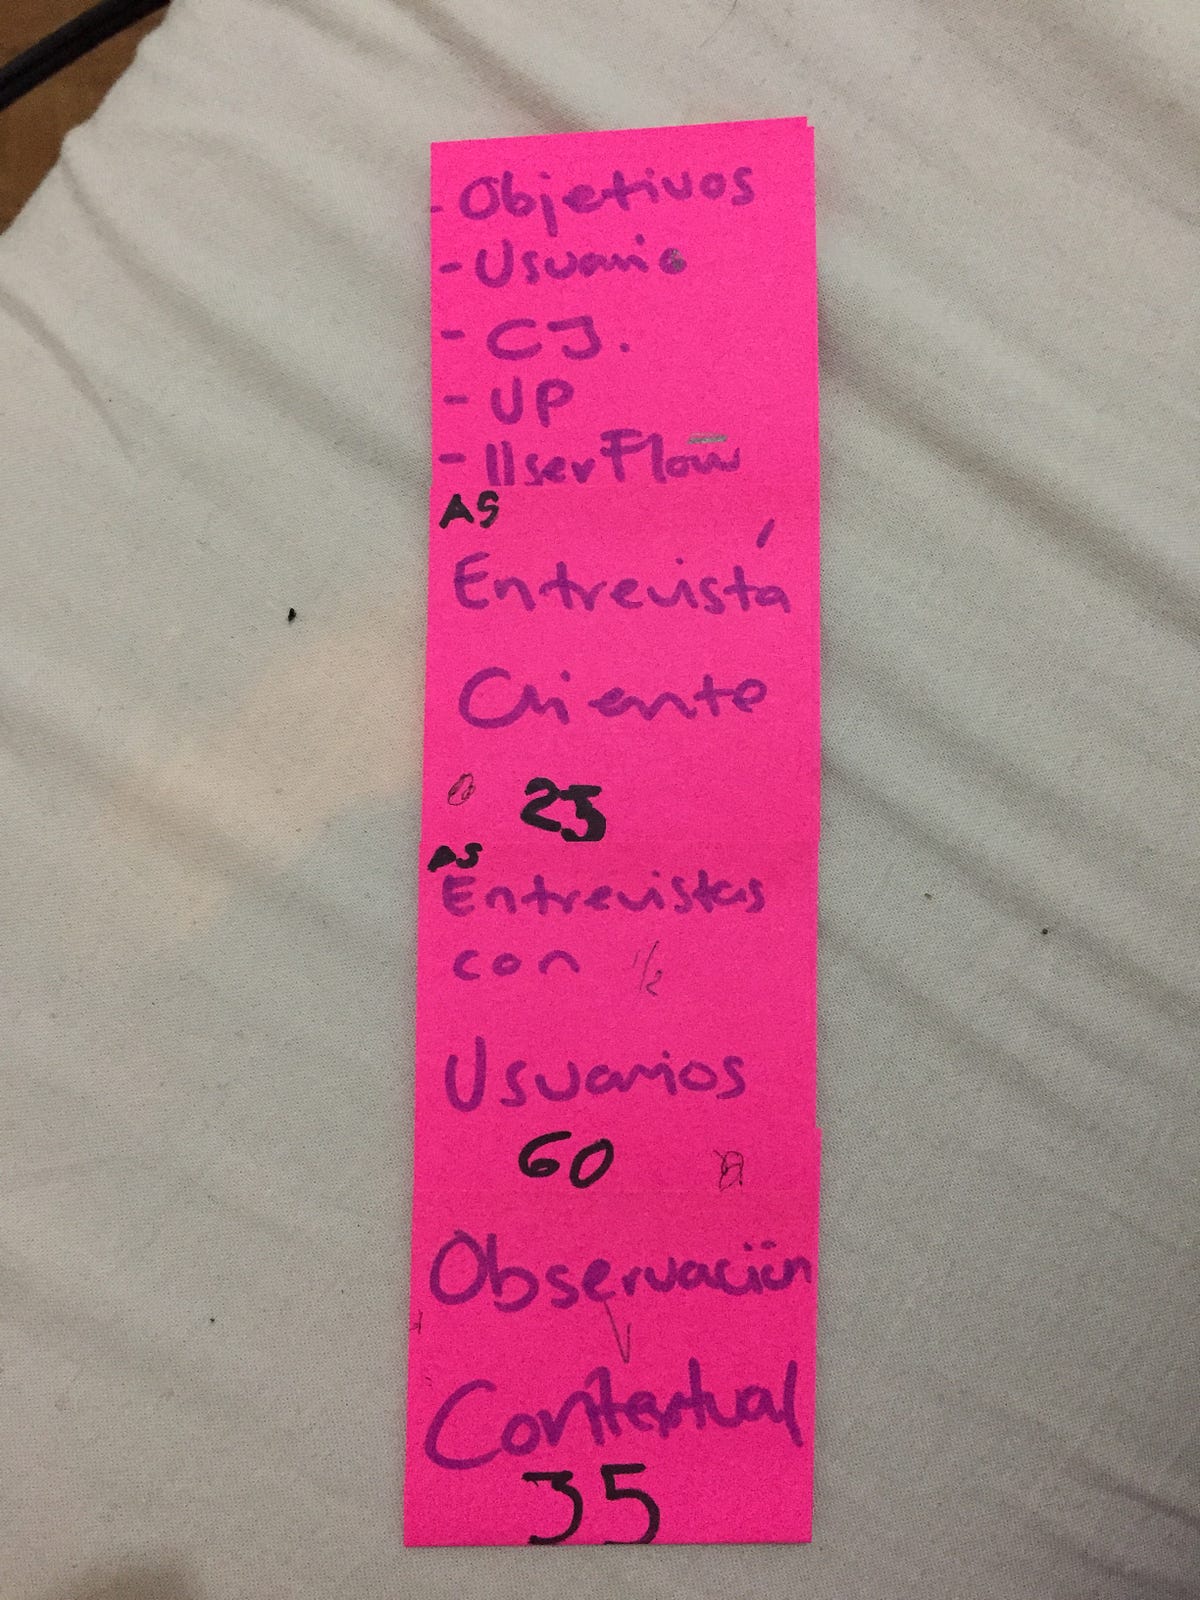 - Objetivos
- Usuario
- CJ.
- UP
- UserFlow
AS
Entrevista
Cliente
25
AS
Entrevistas
con 1/2
Usuarios
60
Observación
Contextual
35